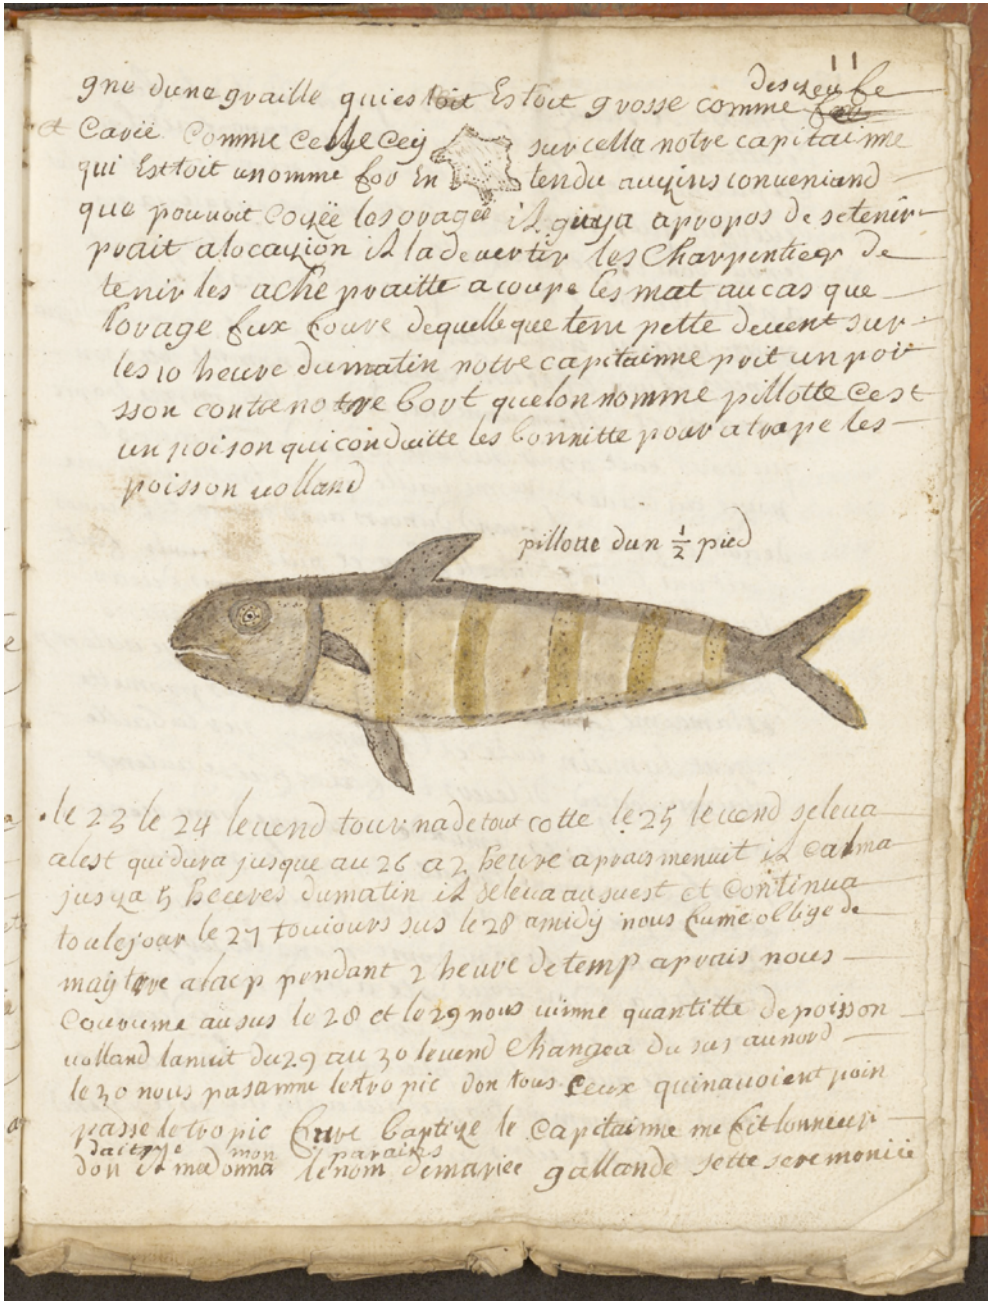 11
gne dune graille qui estoit Estoit grosse comme des zeufe
et Carie Comme celle cey sur cella notre capitainne
qui Esttoit unomme for En tendu auyins conveniand
que pouvoit les oragee il a propos de se tenir
prait alocazion il la de vertir les Charpentier de
tenir les ache praitte a coupe les mat au cas que
lorage fux dequelle que tem pette devent sur
les 10 heure dumatin notre capitainne prit un poi
sson contre notre bort quelon nomme pillotte Cest
un poison qui conduitte les bonnitte pour atrape les
poisson volland
pillotte dun 1/2 pied
le 23 le 24 levend tournadetout cotte le 25 levend seleva
alest qui dura jusque au 26 a 2 heure aprais menuit il calma
jusqa 5 heures dumatin il seleva au suest et continua
toulejour le 27 toujours sus le 28 amidy nous fume oblige de
alacap pendant 2 heure de temp aprais nous
Courume au sus le 28 et le 29 nous vinne quantitte de poisson
volland lanuit du 29 au 30 levend Changea du sus aunord
le 30 nous pasamme letropic don tous Ceux quinavoient poin
passe letropic fure baptize le Capitainne me fit lonneur
daitre mon parains
don il medonna lenom demariee gallande sette seremoniee